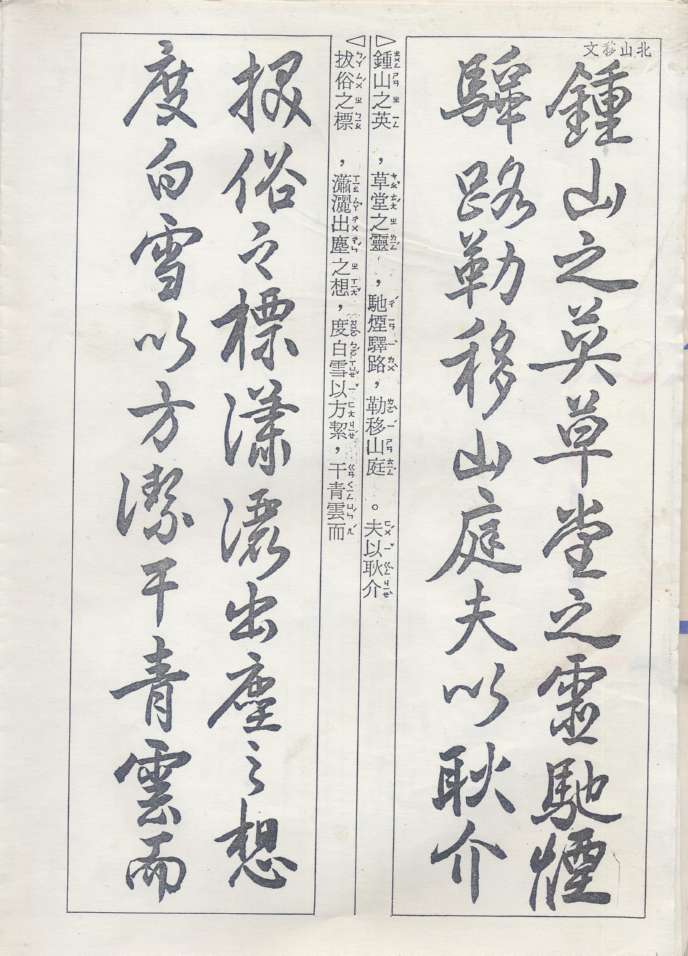 北山移文
鍾山之英草堂之靈馳煙
驛路勒移山庭夫以耿介
鍾山之英，草堂之靈，馳煙驛路，勒移山庭。夫以耿介
拔俗之標，瀟灑出塵之想，度白雪以方絜，干青雲而
拔俗之標瀟灑出塵之想
度白雪以方潔干青雲而